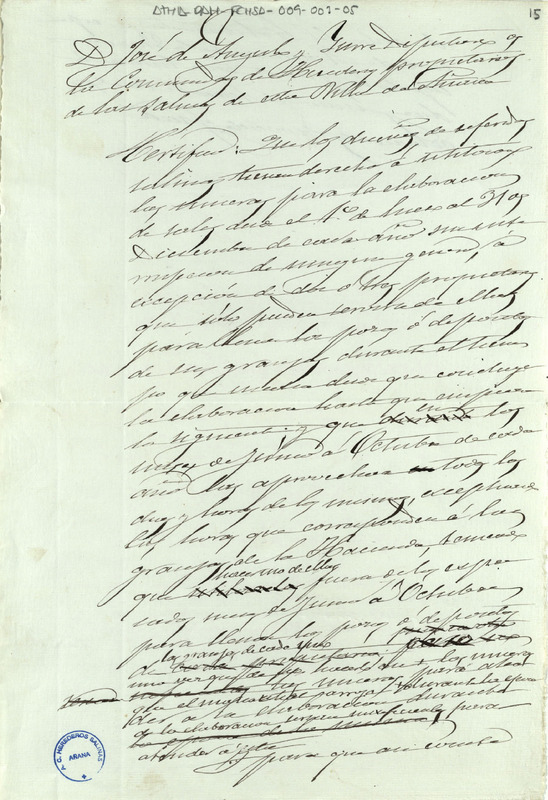 ATHA-DAH-FCHSA-009-002-05
15
D. José de Angulo y Yurre Diputado de
la Comunidad de Herederos propietarios
de las salinas de esta Villa de Añana
Certifico: Que los dueños de referidas
salinas tienen derecho á utilizar
las mueras para la elaboracion
de sales desde el 1.º de Enero al 31 de
Diciembre de cada año sin inte
rrupcion de ninguna genero, á
excepción de dos o tres propietarios
que solo pueden servirse de ellas
para llenar los pozos ó depositos
de sus granjas durante el tiem
po que media desde que concluye
la elaboracion hasta que empieza
la siguiente; y que en los
meses de Junio á Octubre de cada
año las aprovechan todos los
dias y horas de los mismos, exceptuando
las horas que corresponden á las
granjas de la Hacienda,
que hacer uso de ellas fuera de los expre
sados meses de Junio á Octubre
para llenar los pozos ó depositos
de las granjas de cada uno
que el
der a la elaboracion durante
de la elaboracion para
atender a esta
Y para que asi conste
A.C. HEREDEROS SALINAS
AÑANA